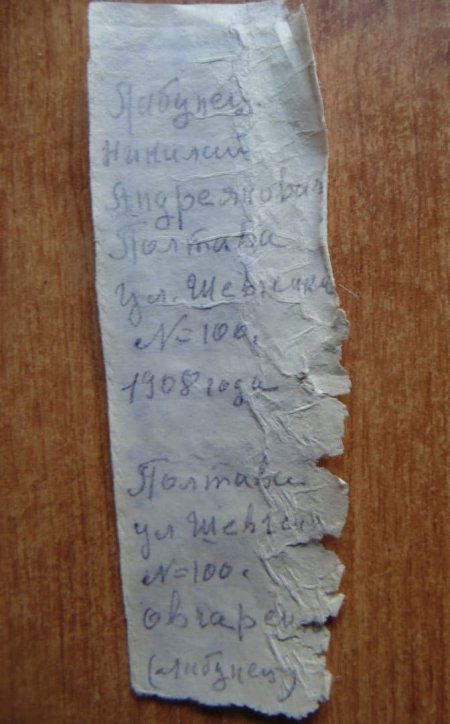 Лабунец
Никилай
Андреянович
Полтава
ул. Шевченка
N=100.
1908 года
Полтава
ул Шевчен
N=100.
овчарен
(лабунец)